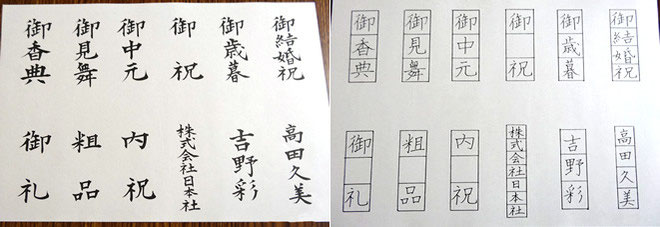 御結婚祝
御歳暮
御祝
御中元
御見舞
御香典
高田久美
吉野彩
株式会社日本社
内祝
粗品
御礼
御結婚祝
御歳暮
御祝
御中元
御見舞
御香典
高田久美
吉野彩
株式会社日本社
内祝
粗品
御礼